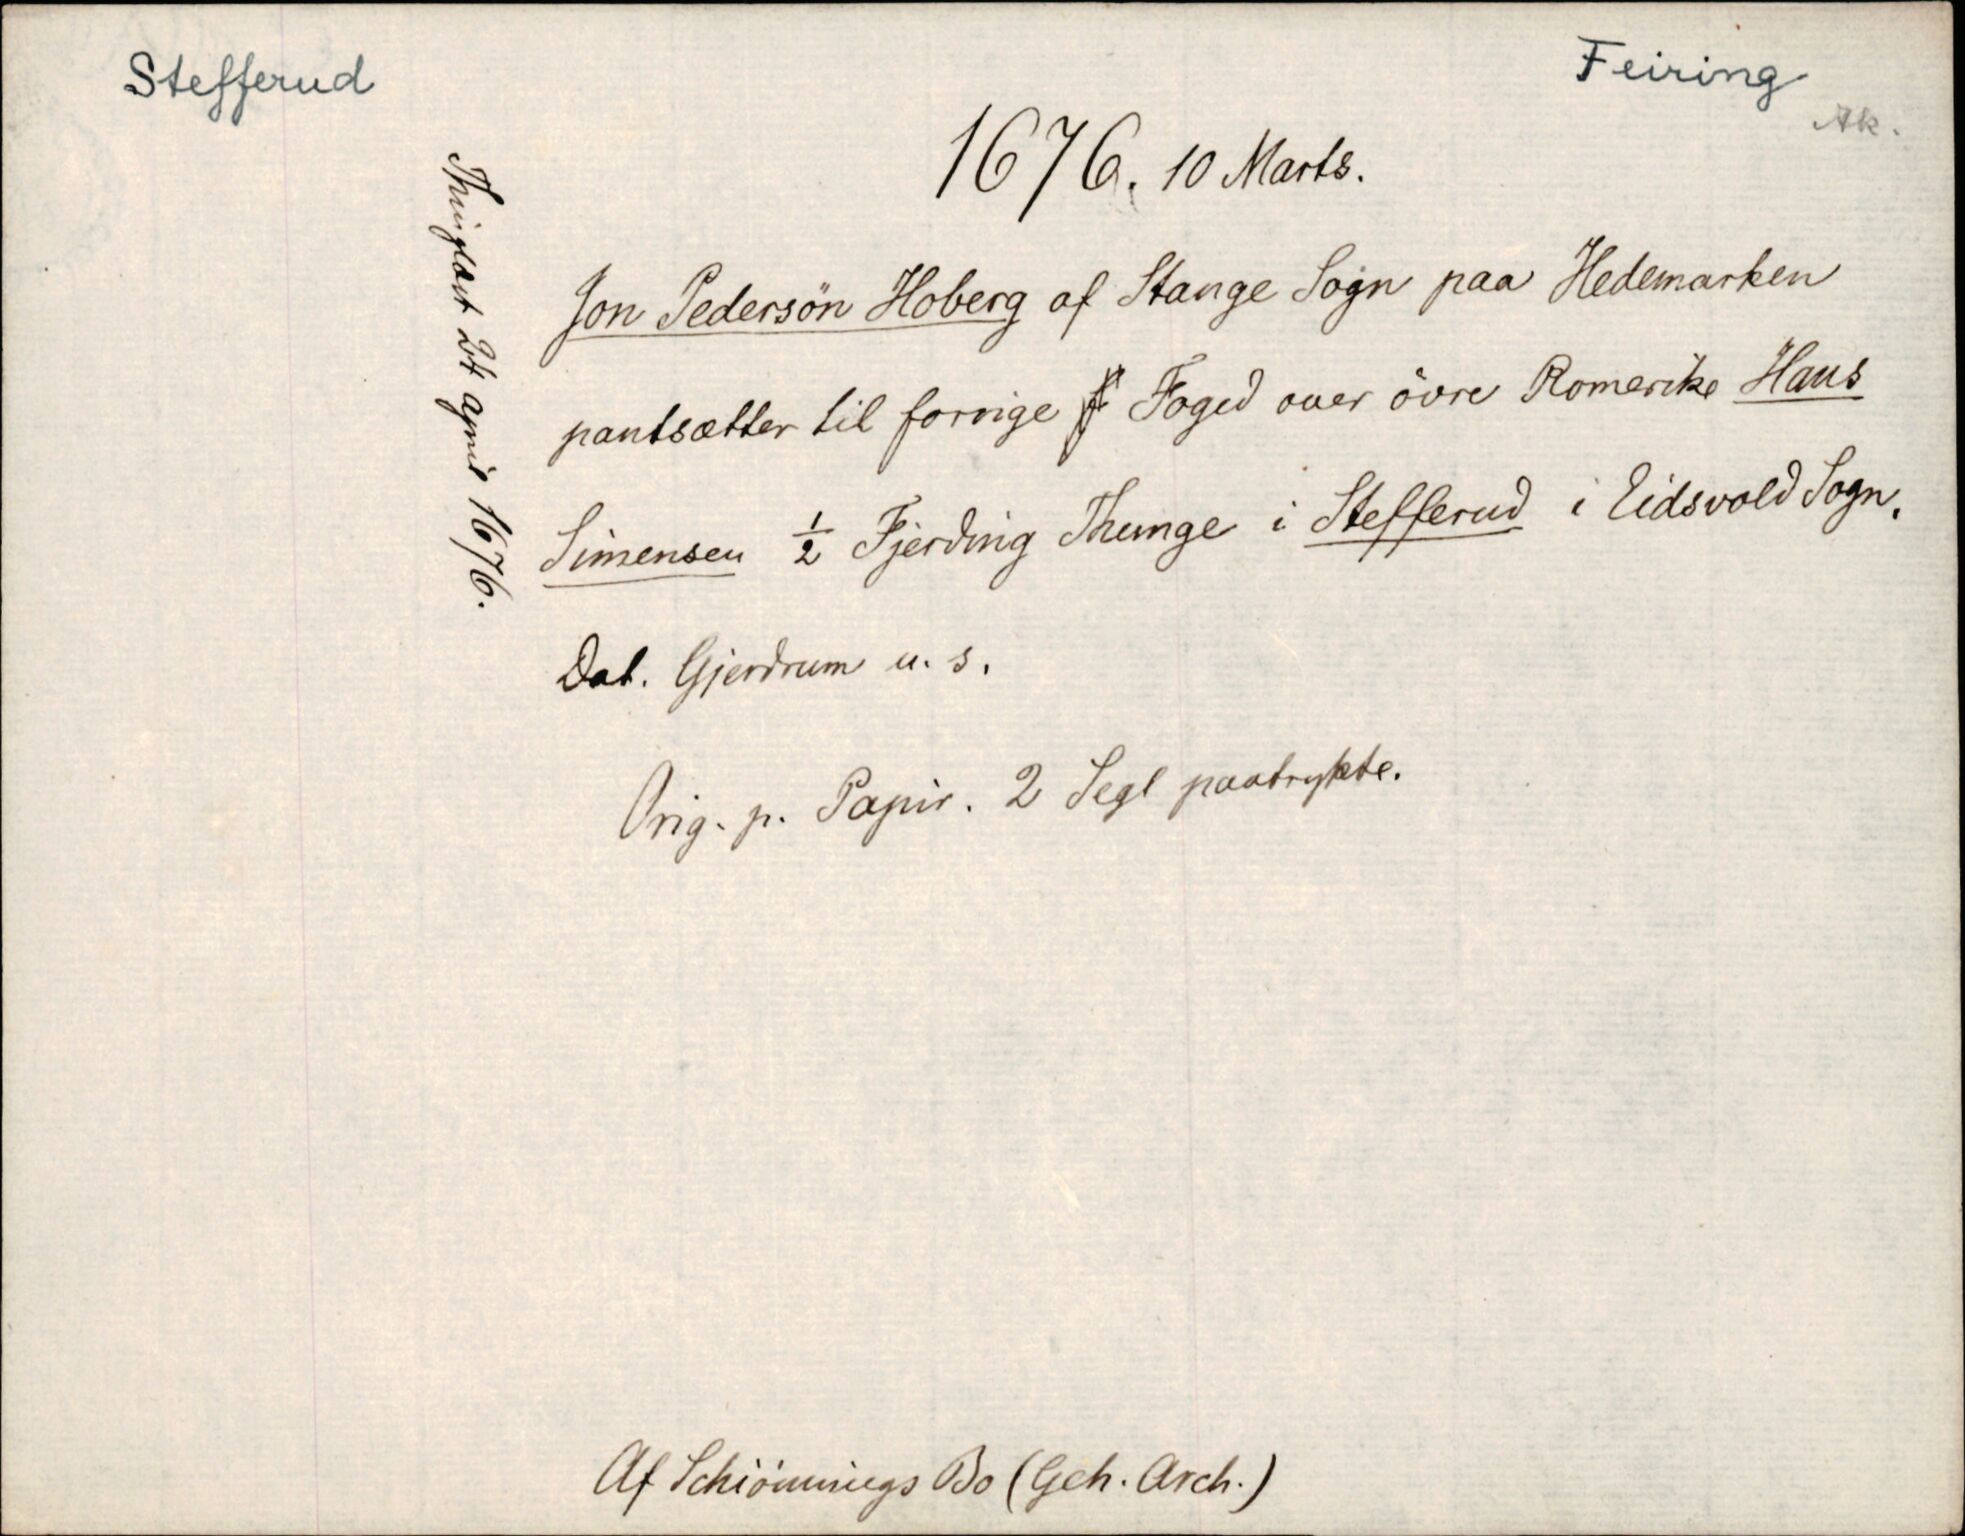 Stefferud
Feiring
Ak.
1676. 10 Marts.
Jon Pedersön Hoberg af Stange Sogn paa Hedemarken
pantsætter til forrige Foged over övre Romerike Hans
Simensen ½ Fjerding Thunge i Stefferud i Eidsvold Sogn.
Dat. Gjerdrum u. s.
Orig. p. Papir. 2 Segl paatrykte.
Thinglæst 24 april 1676.
Af Schiönnings Bo (Geh. Arch.)